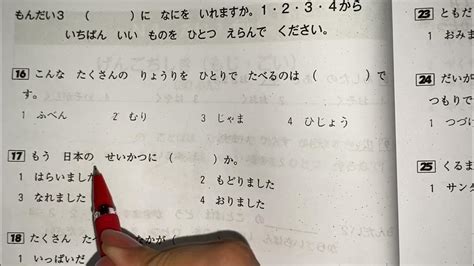 もんだい3 ( )に なにを いれますか。1・2・3・4から
いちばん いい ものを ひとつ えらんで ください。
16 こんな たくさんの りょうりを ひとりで たべるのは ( )で
す。
1 ふべん 2 むり 3 じゃま 4 ひじょう
17 もう 日本の せいかつに ( )か。
1 はらいました 2 もどりました
3 なれました 4 おりました
18 たくさん
1 いっぱいだ
23 ともだ
1 おみま
24 だいが
つもりで
1 つづけ
25 くるま
1 サンタ